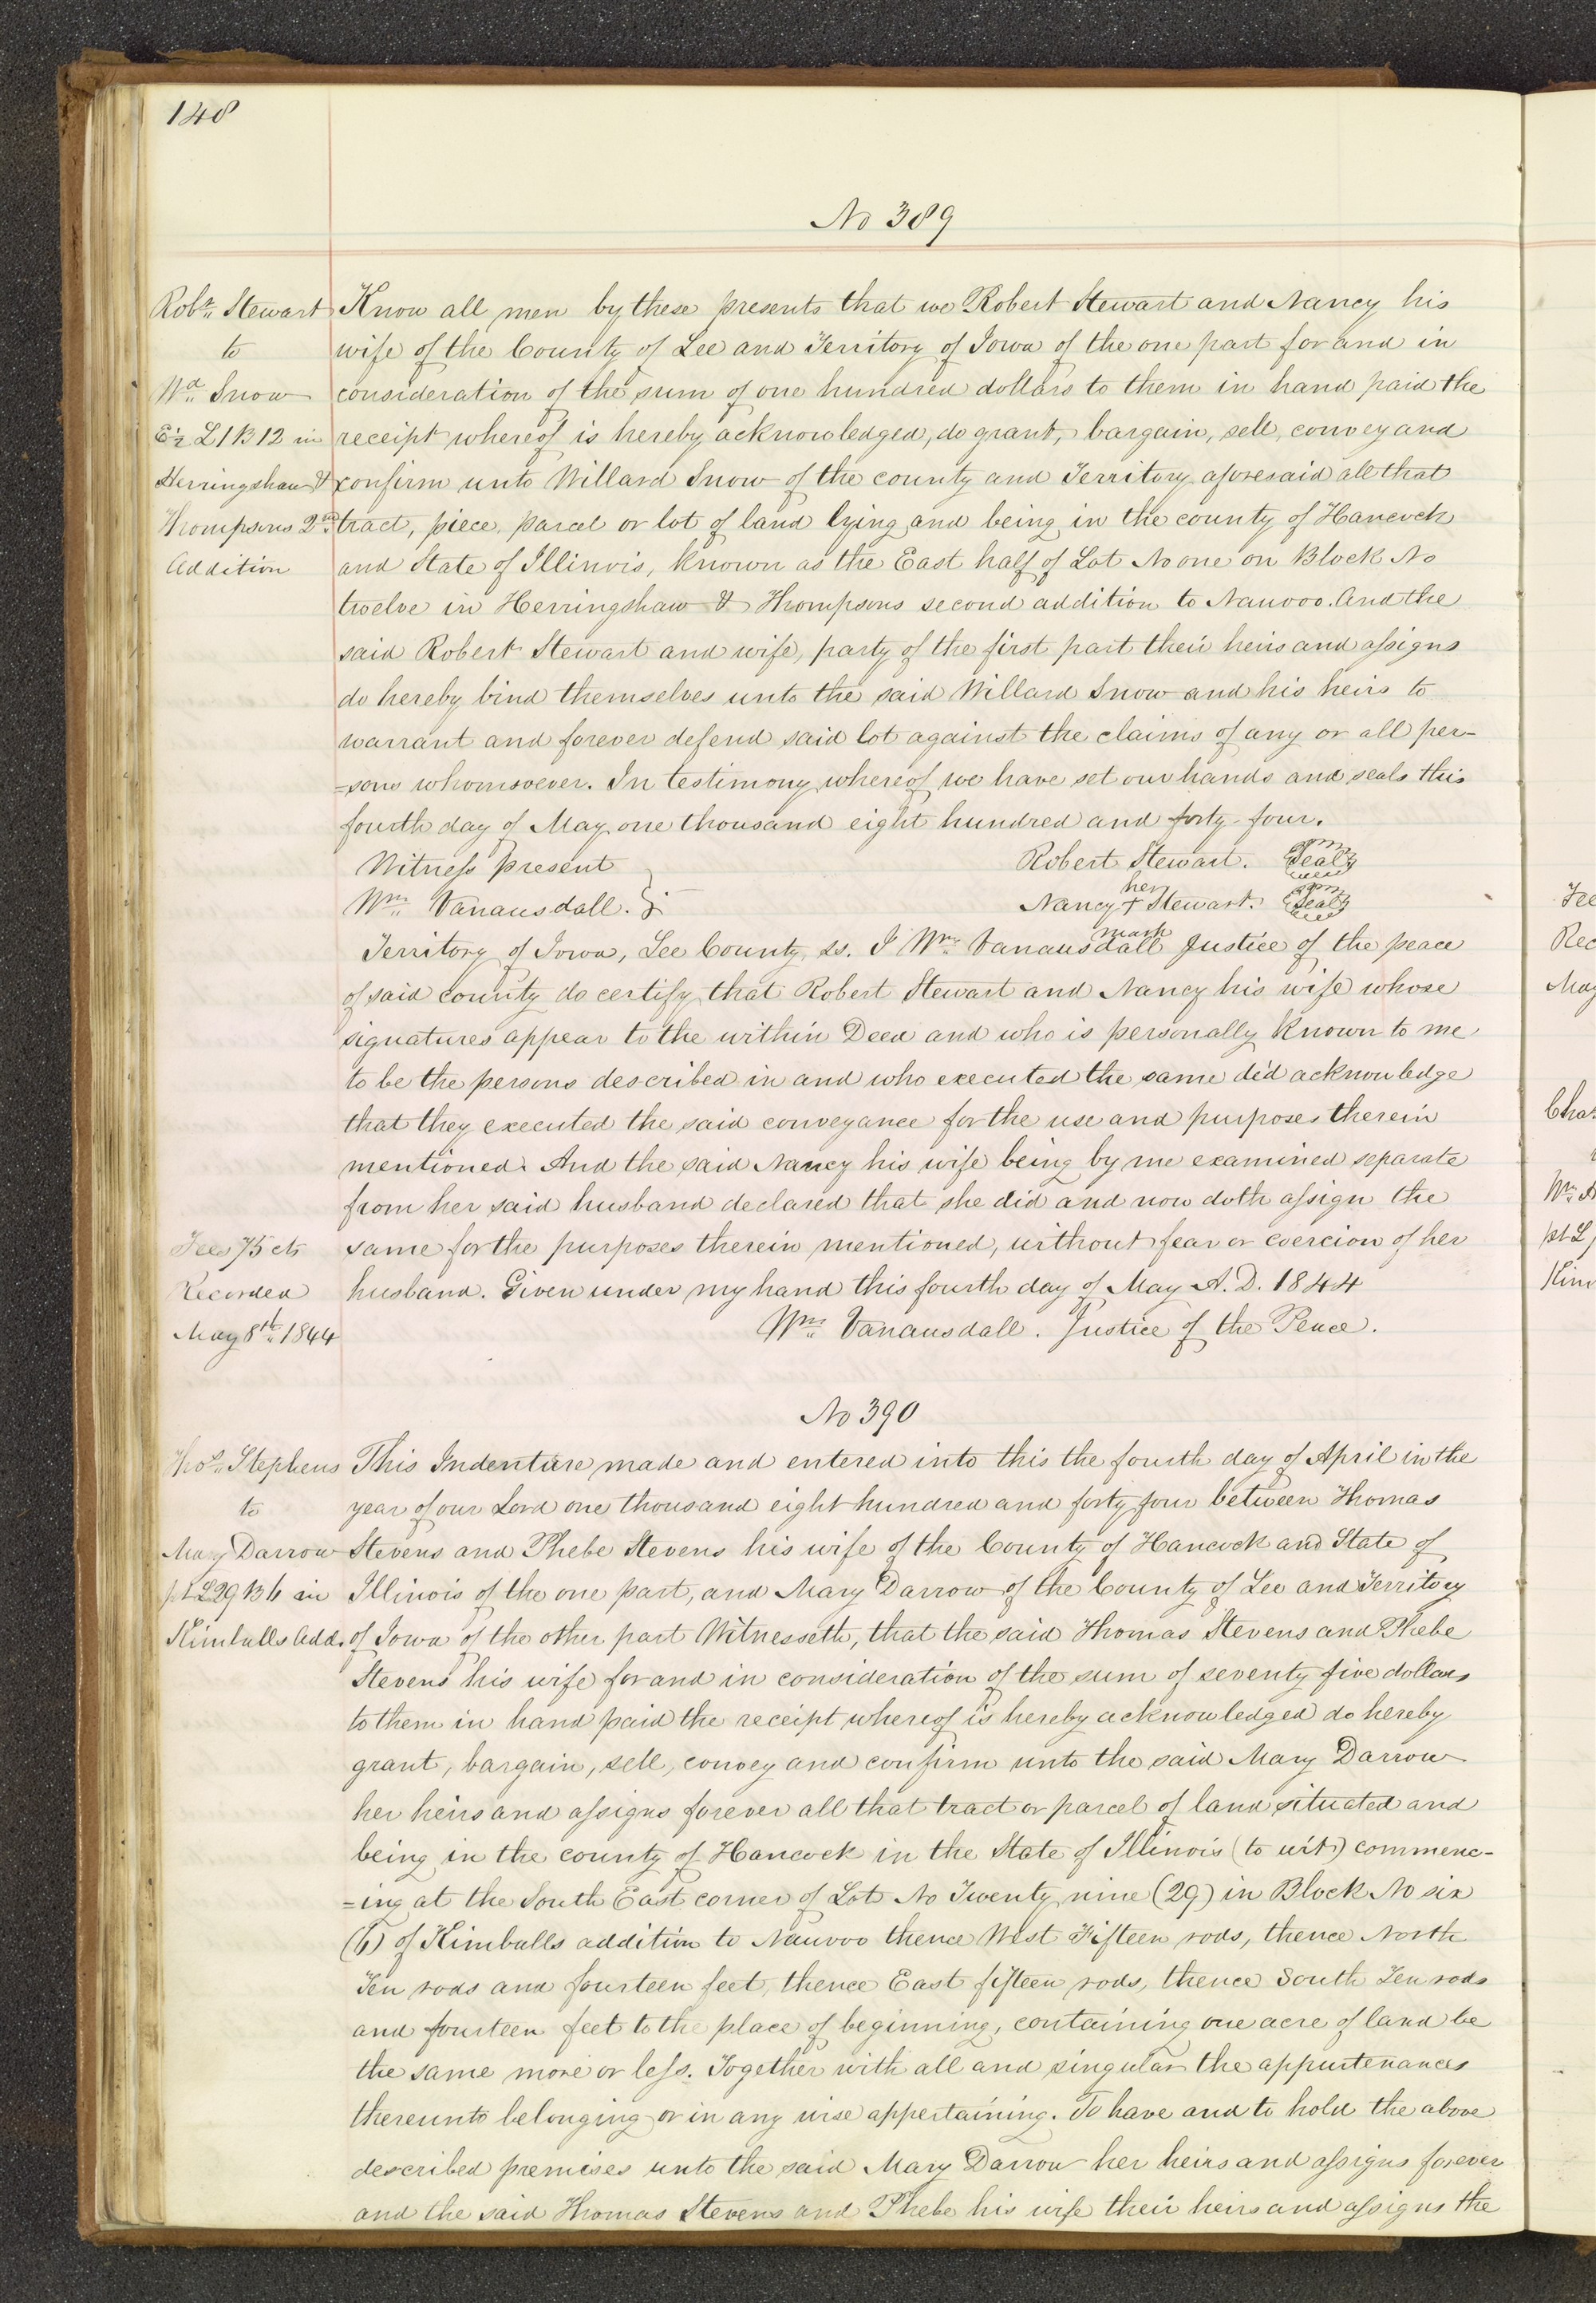 148
No 389
Robt. Stewart
to
Wd. Snow
E ½ L 1 B 12 in
Herringshaw &
Thompsons 2nd
Addition
Know all men by these presents that we Robert Stewart and Nancy his
wife of the County of Lee and Territory of Iowa of the one part for and in
consideration of the sum of one hundred dollars to them in hand paid the
receipt whereof is hereby acknowledged, do grant, bargain, sell, convey and
confirm unto Willard Snow of the county and Territory aforesaid all that
tract, piece, parcel or lot of land lying and being in the county of Hancock
and State of Illinois, known as the East half of Lot No one on Block No
twelve in Herringshaw & Thompsons second addition to Nauvoo. And the
said Robert Stewart and wife, party of the first part their heirs and assigns
do hereby bind themselves unto the said Willard Snow and his heirs to
warrant and forever defend said lot against the claims of any or all per-
=sons whomsoever. In testimony whereof we have set our hands and seals this
fourth day of May one thousand eight hundred and forty-four.
Witness present
Robert Stewart. Seal
her
Wm. Vanausdall.
Nancy + Stewart. Seal
mark
Territory of Iowa, Lee County, ss. I Wm. Vanausdall Justice of the peace
of said county do certify that Robert Stewart and Nancy his wife whose
signatures appear to the within Deed and who is personally known to me
to be the persons described in and who executed the same did acknowledge
that they executed the said conveyance for the use and purposes therein
mentioned. And the said Nancy his wife being by me examined separate
from her said husband declared that she did and now doth assign the
same for the purposes therein mentioned, without fear or coercion of her
husband. Given under my hand this fourth day of May A.D. 1844
Wm. Vanausdall. Justice of the Peace.
Fees 75 cts
Recorded
May 8th. 1844
No 390
Thos. Stephens
to
Mary Darrow
pt L 29 B 6 in
Kimballs Add.
This Indenture made and entered into this the fourth day of April in the
year of our Lord one thousand eight hundred and forty four between Thomas
Stevens and Phebe Stevens his wife of the County of Hancock and State of
Illinois of the one part, and Mary Darrow of the County of Lee and Territory
of Iowa of the other part Witnesseth, that the said Thomas Stevens and Phebe
Stevens his wife for and in consideration of the sum of seventy five dollars
to them in hand paid the receipt whereof is hereby acknowledged do hereby
grant, bargain, sell, convey and confirm unto the said Mary Darrow
her heirs and assigns forever all that tract or parcel of land situated and
being in the county of Hancock in the State of Illinois (to wit) commenc-
=ing at the South East corner of Lot No Twenty nine (29) in Block No six
(6) of Kimballs addition to Nauvoo thence West Fifteen rods, thence North
Ten rods and fourteen feet, thence East fifteen rods, thence South Ten rods
and fourteen feet to the place of beginning, containing one acre of land be
the same more or less. Together with all and singular the appurtenances
thereunto belonging or in any wise appertaining. To have and to hold the above
described premises unto the said Mary Darrow her heirs and assigns forever
and the said Thomas Stevens and Phebe his wife their heirs and assigns the
Fee
Rec
May
Chas
Wm. A
pt L
Kim